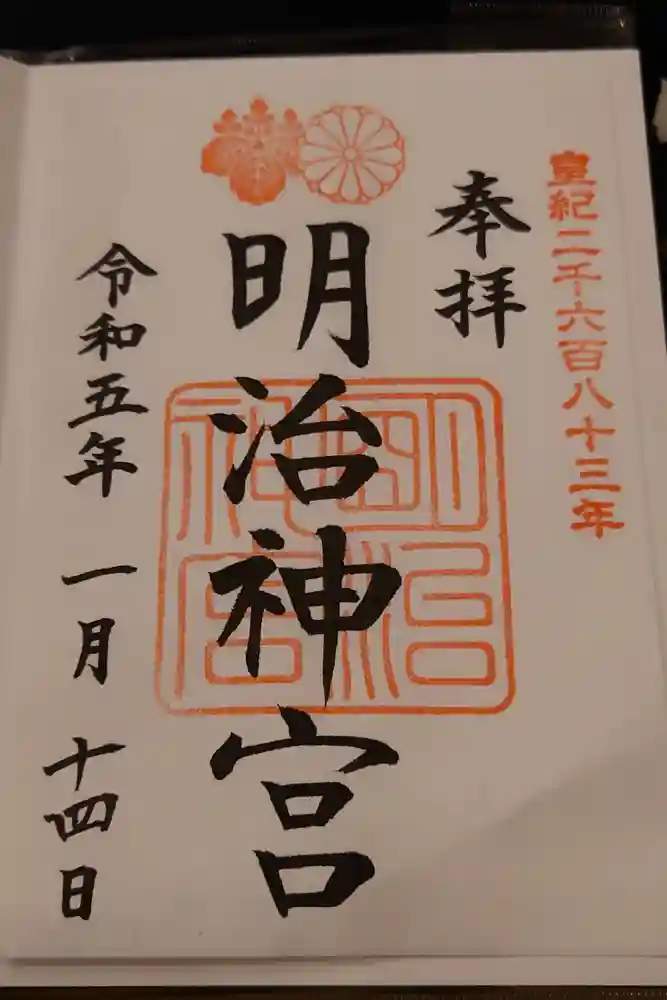 皇紀二千六百八十三年
奉拝
明治神宮
明治神宮
令和五年 一月 十四日